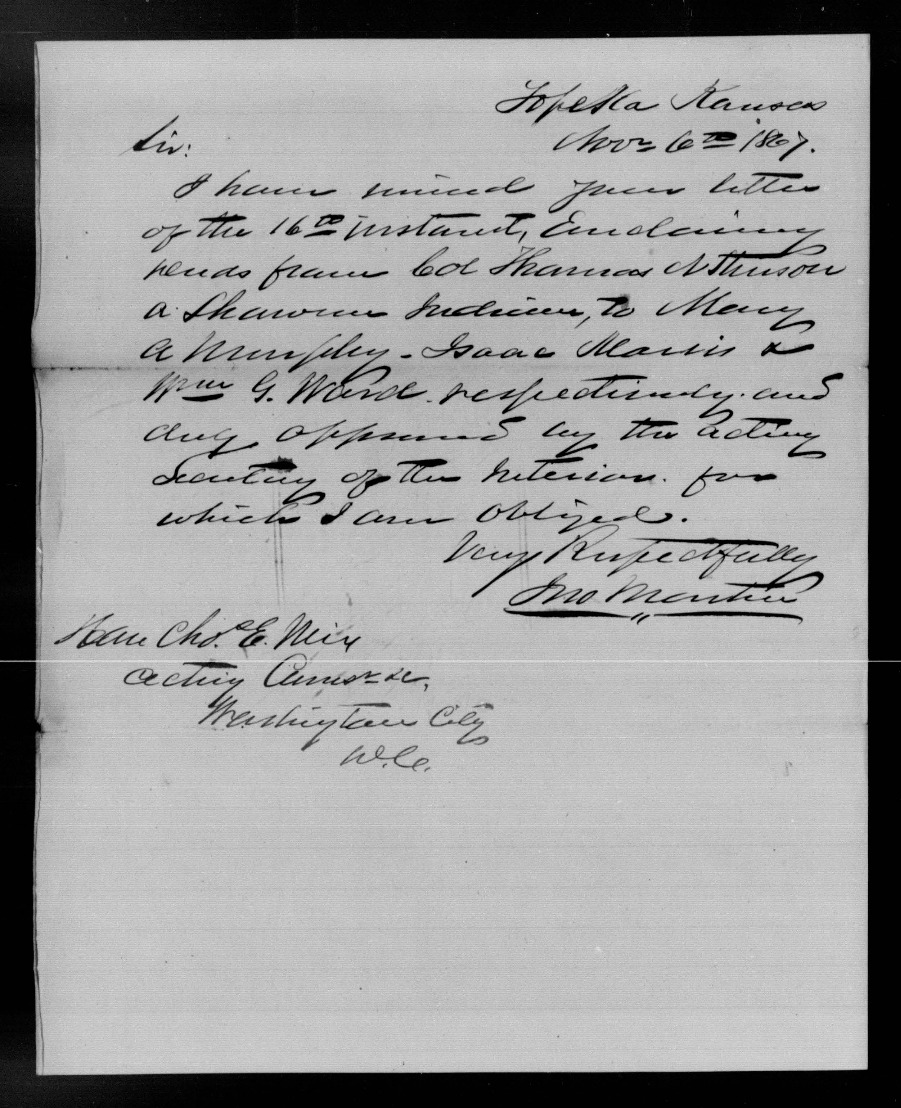 Topeka Kansas
Nov 6th 1867.
Sir:
I have received your letter
of the 16th instant, Enclosing
from Thomas
a Shawnee Indian, to Mary
A Murphy - Isaac &
Wm G. Ward. respectively. and
duly approved by the acting
Secretary of the Interior. for
which I am obliged.
Very Respectfully
Jno Martin
Hon Chas. E. Mix
acting Comsr &c,
Washington City
D.C.